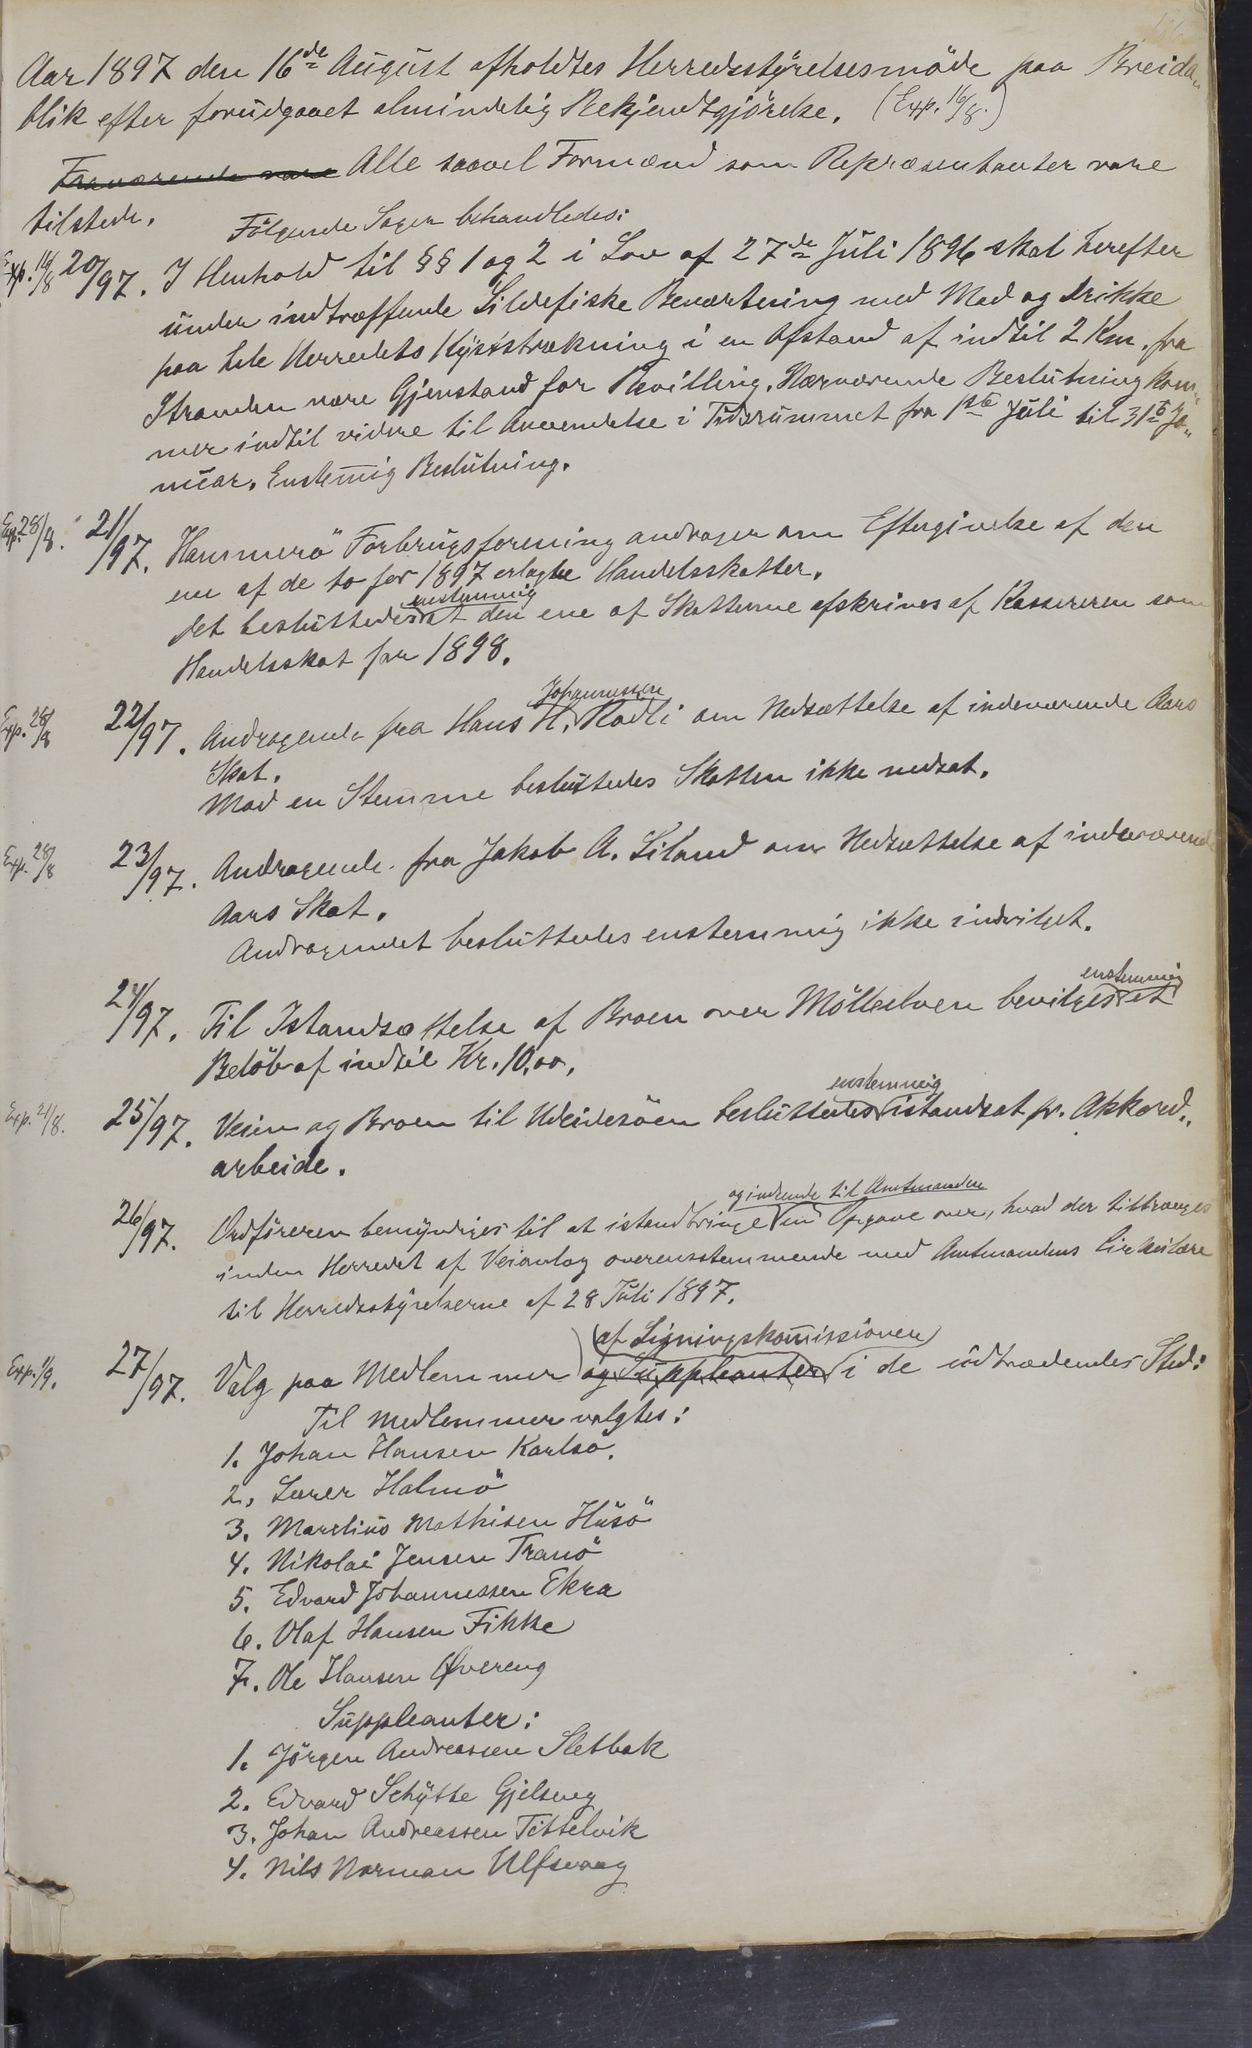 Aar 1897 den 16de August afholdtes Herredsstyrelsesmöde paa Breida„
blik efter forudgaaet almindelig Bekjendtgjörelse. (Exp. 16/8.)
Fraværende vare Alle saavel Formænd som Repræsentanter vare
tilstede.
Fölgende Sager behandledes:
Exp. 16/8 20/97. I Henhold til §§ 1 og 2 i Lov af 27de Juli 1896 skal herefter
under indtræffende Sildefiske Beværtning med Mad og Drikke
paa hele Herredets Kyststrækning i en Afstand af indtil 2 Km. fra
Stranden være Gjenstand for Bevilling. Nærværende Beslutning kom„
mer indtil videre til Anvendelse i Tidsrummet fra 1ste Juli til 31te Ja„
nuar. Enstemig Beslutning.
Exp. 28/8. 21/97. Hammerö Forbrugsforening andrager om Eftergivelse af den
ene af de to for 1897 erlagte Handelsskatter.
enstemmig
Det besluttedes at den ene af Skatterne afskrives af Kassereren som
Handelsskat for 1898.
Johannessen
Exp. 28/8 22/97. Andragende fra Hans H. Rodli om Nedsættelse af indeværende Aars
Skat.
Mod en Stemme besluttedes Skatten ikke nedsat.
Exp. 28/8 23/97. Andragende fra Jakob A. Liland om Nedsættelse af indeværende
Aars Skat.
Andragendet besluttedes enstemmig ikke indvilget.
enstemmig
24/97. Til Istandsættelse af Broen over Möllelven bevilges et
Belöb af indtil Kr. 10,00.
enstemmig
Exp. 21/8. 25/97. Veien og Broen til besluttedes istandsat pr. Akkord„
arbeide.
og indsende til Amtmanden
26/97. Ordföreren bemyndiges til at istandbringe en Opgave over, hvad der tiltrænges
inden Herredet af Veianlæg overensstemmende med Amtmandens Cirkulære
til Herredsstyrelserne af 28 Juli 1897.
af Ligningskommissionen
Exp. 1/9. 27/97. Valg paa Medlemmer og Suppleanter i de udtrædendes Sted:
Til Medlemmer valgtes:
1. Johan Hansen Karlsö.
2. Lærer Holmö
3. Marelius Mathisen Husö
4. Nikolai Jensen Tranö
5. Edvard Johannessen Ekra
6. Olaf Hansen Fikke
7. Ole Hansen Øvereng
Suppleanter:
1. Jörgen Andreassen Sletbak
2. Edvard Schytte Gjelseng
3. Johan Andreassen Tittelvik
4. Nils Norman Ulfsvaag